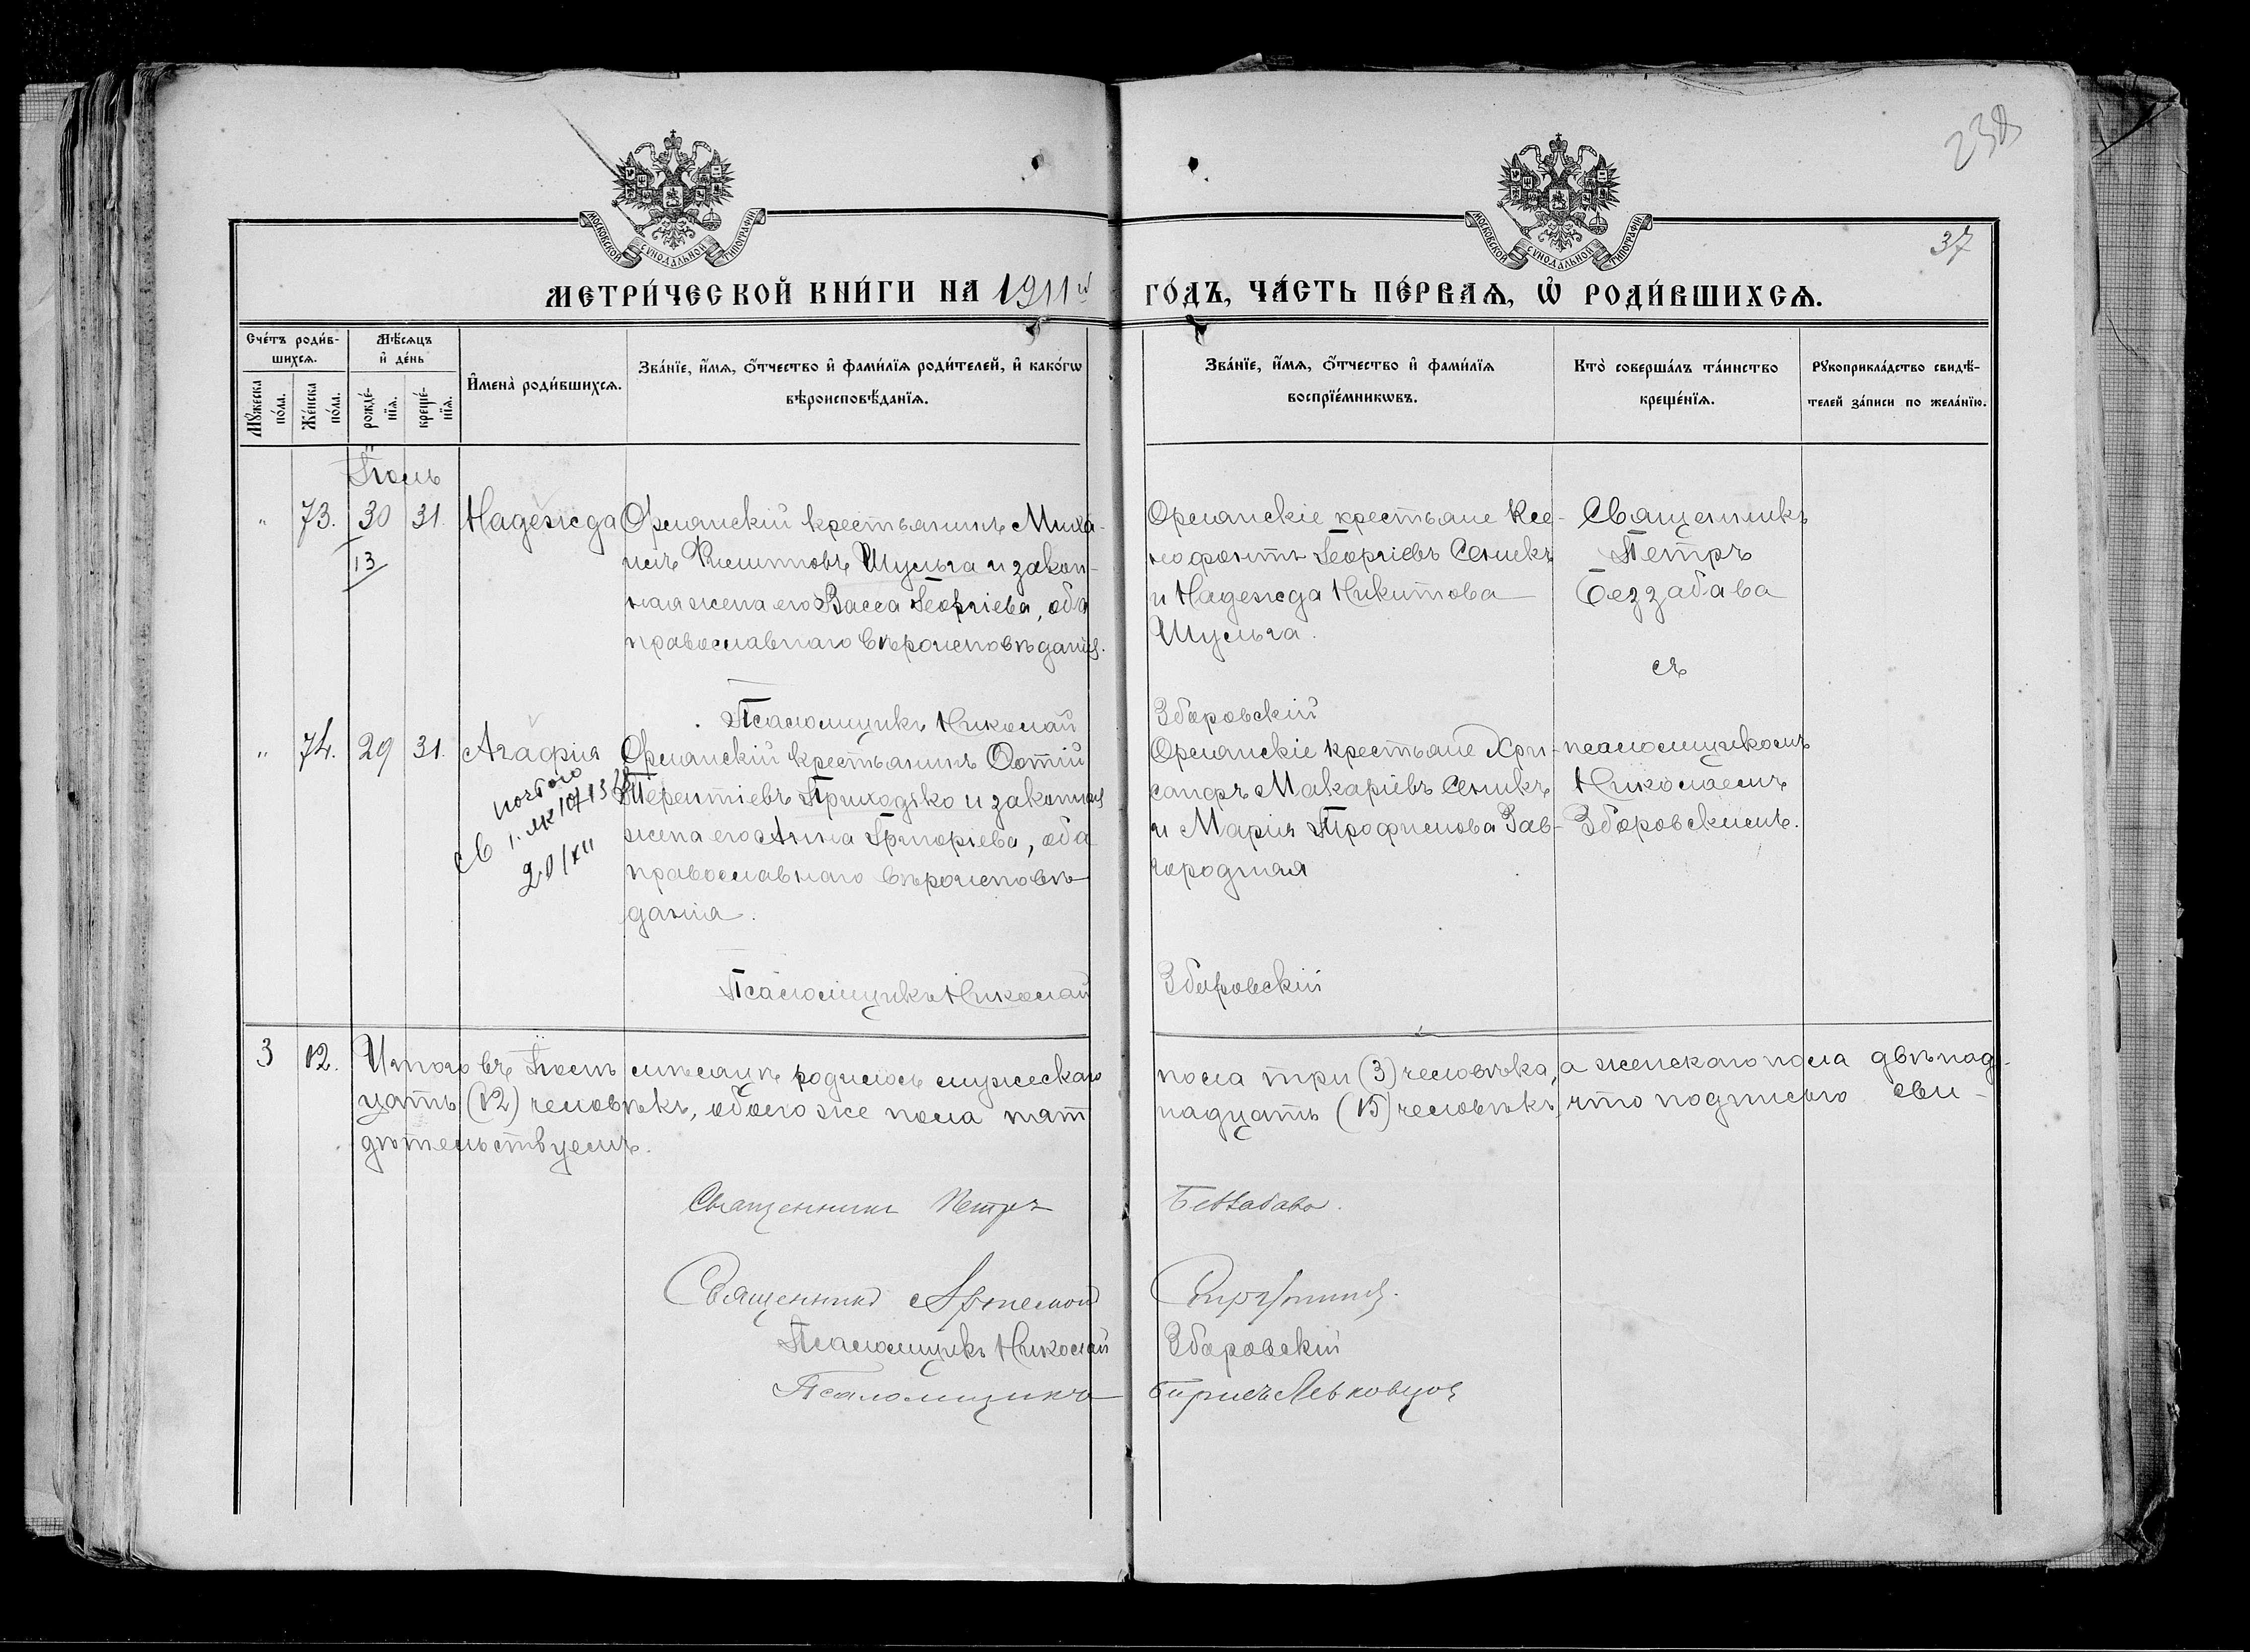 238
37
МОСКОВСКОЙ СѴНОДАЛЬНОЙ ТИПОГРАФІИ
МОСКОВСКОЙ СѴНОДАЛЬНОЙ ТИПОГРАФІИ
МЕТРИ́ЧЕСКОЙ КНИ́ГИ НА 1911й ГО́ДЪ, ЧА́СТЬ ПЕ́РВАѦ, Ѡ҆ РОДИ́ВШИХСѦ.
Сче́тъ роди́в-
шихсѧ.
Мꙋ́жеска
по́ла.
Же́нска
по́ла.
Мѣ́сѧцъ
и҆ де́нь
рожде́-
нїѧ.
креще́-
нїѧ.
И҆мена̀ роди́вшихсѧ.
Зва́нїе, и҆́мѧ, ѻ҆́тчество и҆ фами́лїѧ роди́телей, и҆ како́гѡ
вѣроисповѣ́данїѧ.
Зва́нїе, и҆́мѧ, ѻ҆́тчество и҆ фами́лїѧ
воспрїе́мникѡвъ.
Кто̀ соверша́лъ та́инство
креще́нїѧ.
Рꙋкоприкла́дство свидѣ́-
телей за́писи по жела́нїю.
Іюль
" 73. 30 31. Надежда
13
Орланскій крестьянинъ Миха-
илъ Шульга и закон-
ная жена его Васса Георгіева, оба
православнаго вѣроисповѣданія.
Орланскіе крестьяне Ксе-
нофонтъ Георгіевъ Сеникъ
и Надежда Никитова
Шульга.
Священникъ
Петръ
Беззабава
съ
Псаломщикъ Николай Зборовскій
" 74. 29 31. Агафія
Орланскій крестьянинъ Фотій
Терентіевъ Приходько и законная
жена его Анна Григоріева, оба
православнаго вѣроисповѣ-
данія.
20/XII
Орланскіе крестьяне Хри-
санфъ Макаріевъ Сеникъ
и Марія Трофимова Зав-
городняя
псаломщикомъ
Николаемъ
Зборовскимъ.
Псаломщикъ Николай Зборовскій
3 12. Итого въ Іюлѣ мѣсяцѣ родилось мужескаго пола три (3) человѣка, а женскаго пола двѣнад-
цать (12) человѣкъ, обоего же пола пят надцать (15) человѣкъ, что подписью сви-
дѣтельствуемъ.
Священникъ Петръ Беззабава.
Священникъ Артемій
Псаломщикъ Николай Зборовскій
Псаломщикъ Борисъ Левковцов